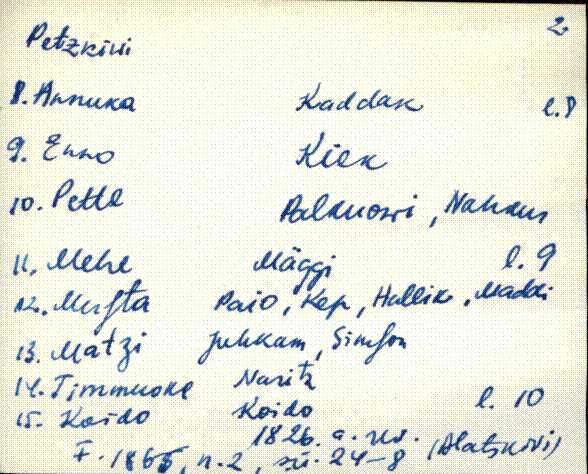 2
Petzkivi
8. Annuka Kaddak l. 8
9. Enno Kiek
10. Pette Palkuowi, Nahkus
11. Mehe Mäggi l. 9
12. Mursta Paio, Kep, Hallik, Maddi
13. Matzi Juhkam, Simson
14. Timmuske Naritz
15. Koido Koido l. 10
1826. a. rev. (Alatskivi)
F. 1865, n. 2, sü. 24-8